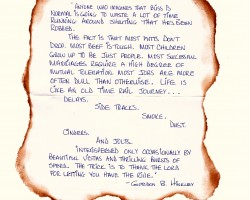 "Anyone who imagines that bliss is
normal is going to waste a lot of time
running around shouting that he's been
robbed.
The fact is that most putts don't
drop. Most beef is tough. Most children
grow up to be just people. Most successful
marriages require a high degree of
mutual toleration. Most jobs are more
often dull than otherwise. Life is
like an old time rail journey...
Delays.
Side tracks.
Smoke.
Dust.
Cinders.
And jolts.
Interspersed only occasionally by
beautiful vistas and thrilling bursts of
speed. The trick is to thank the Lord
for letting you have the ride."
- Gordon B. Hinckley